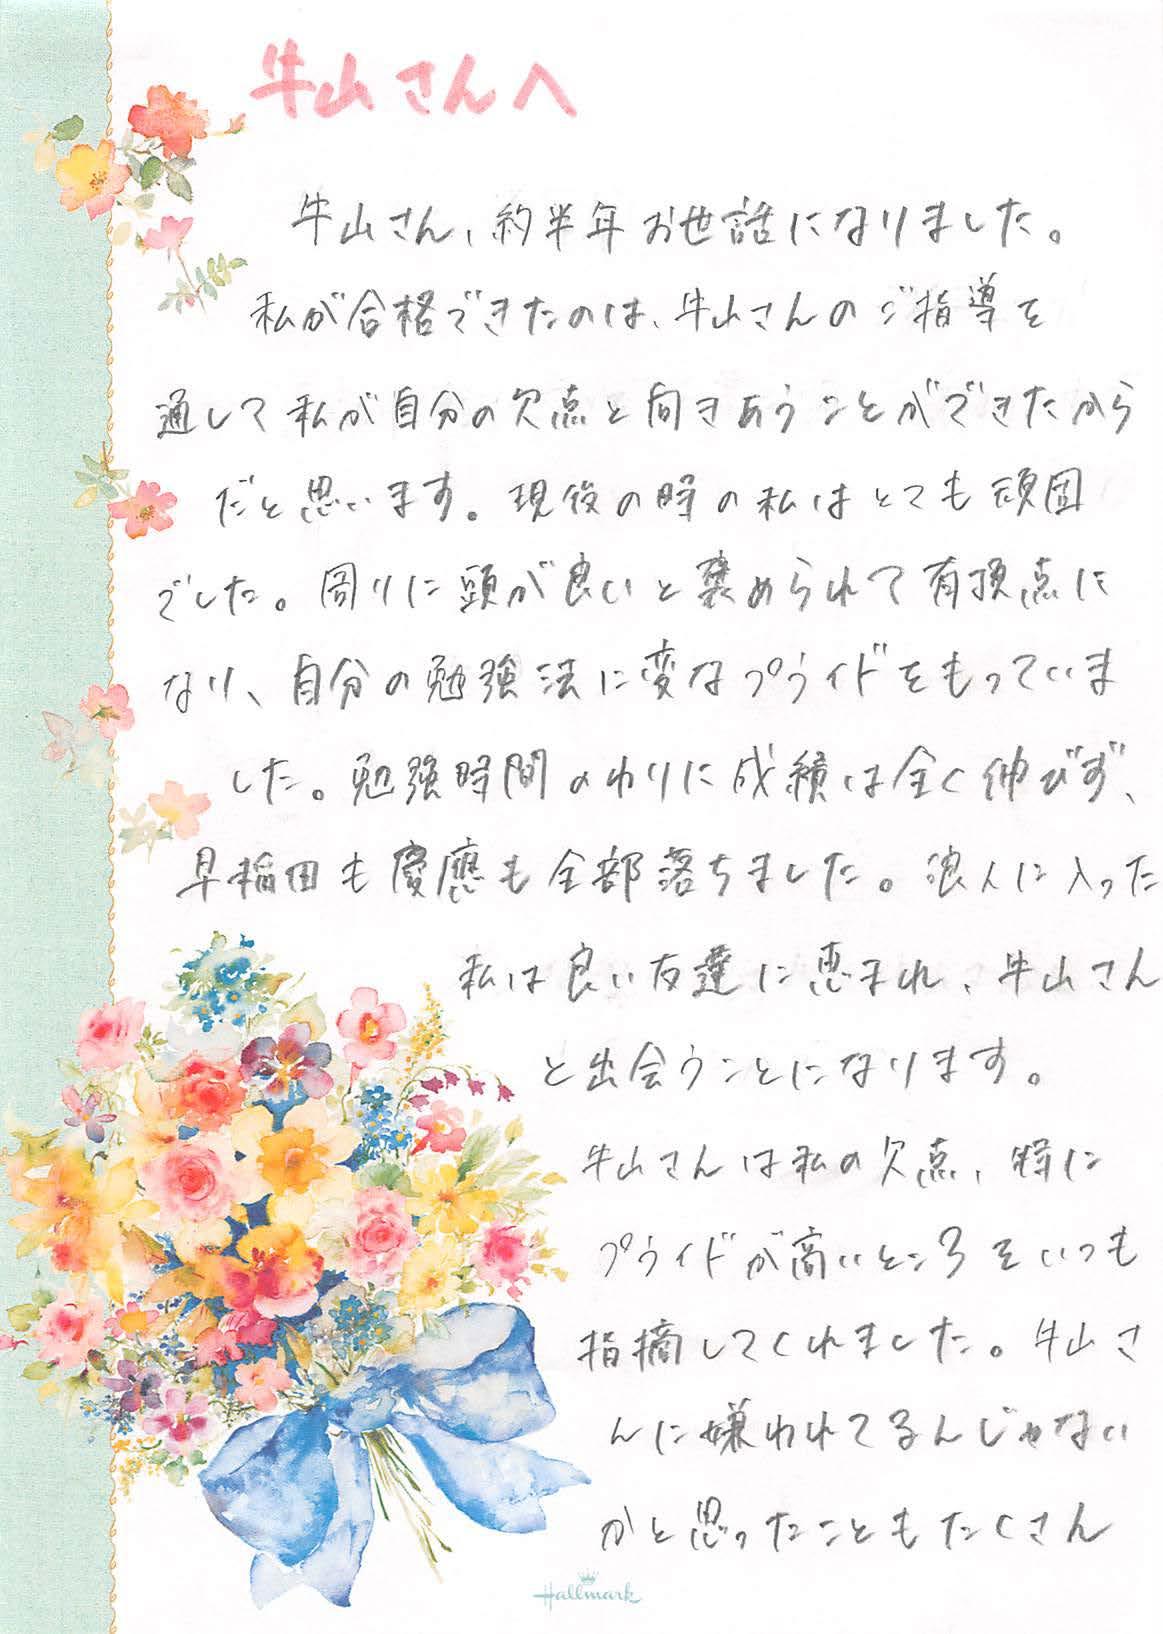 牛山さんへ
牛山さん、約半年お世話になりました。
私が合格できたのは、牛山さんのご指導を
通して私が自分の欠点と向きあうことができたから
だと思います。現役の時の私はとても頑固
でした。周りに頭が良いと褒められて有頂点に
なり、自分の勉強法に変なプライドをもっていま
した。勉強時間のわりに成績は全く伸びず、
早稲田も慶應も全部落ちました。浪人に入った
私は良い友達に恵まれ、牛山さん
と出会うことになります。
牛山さんは私の欠点、特に
プライドが高いところをいつも
指摘してくれました。牛山さ
んに嫌われてるんじゃない
かと思ったこともたくさん
Hallmark